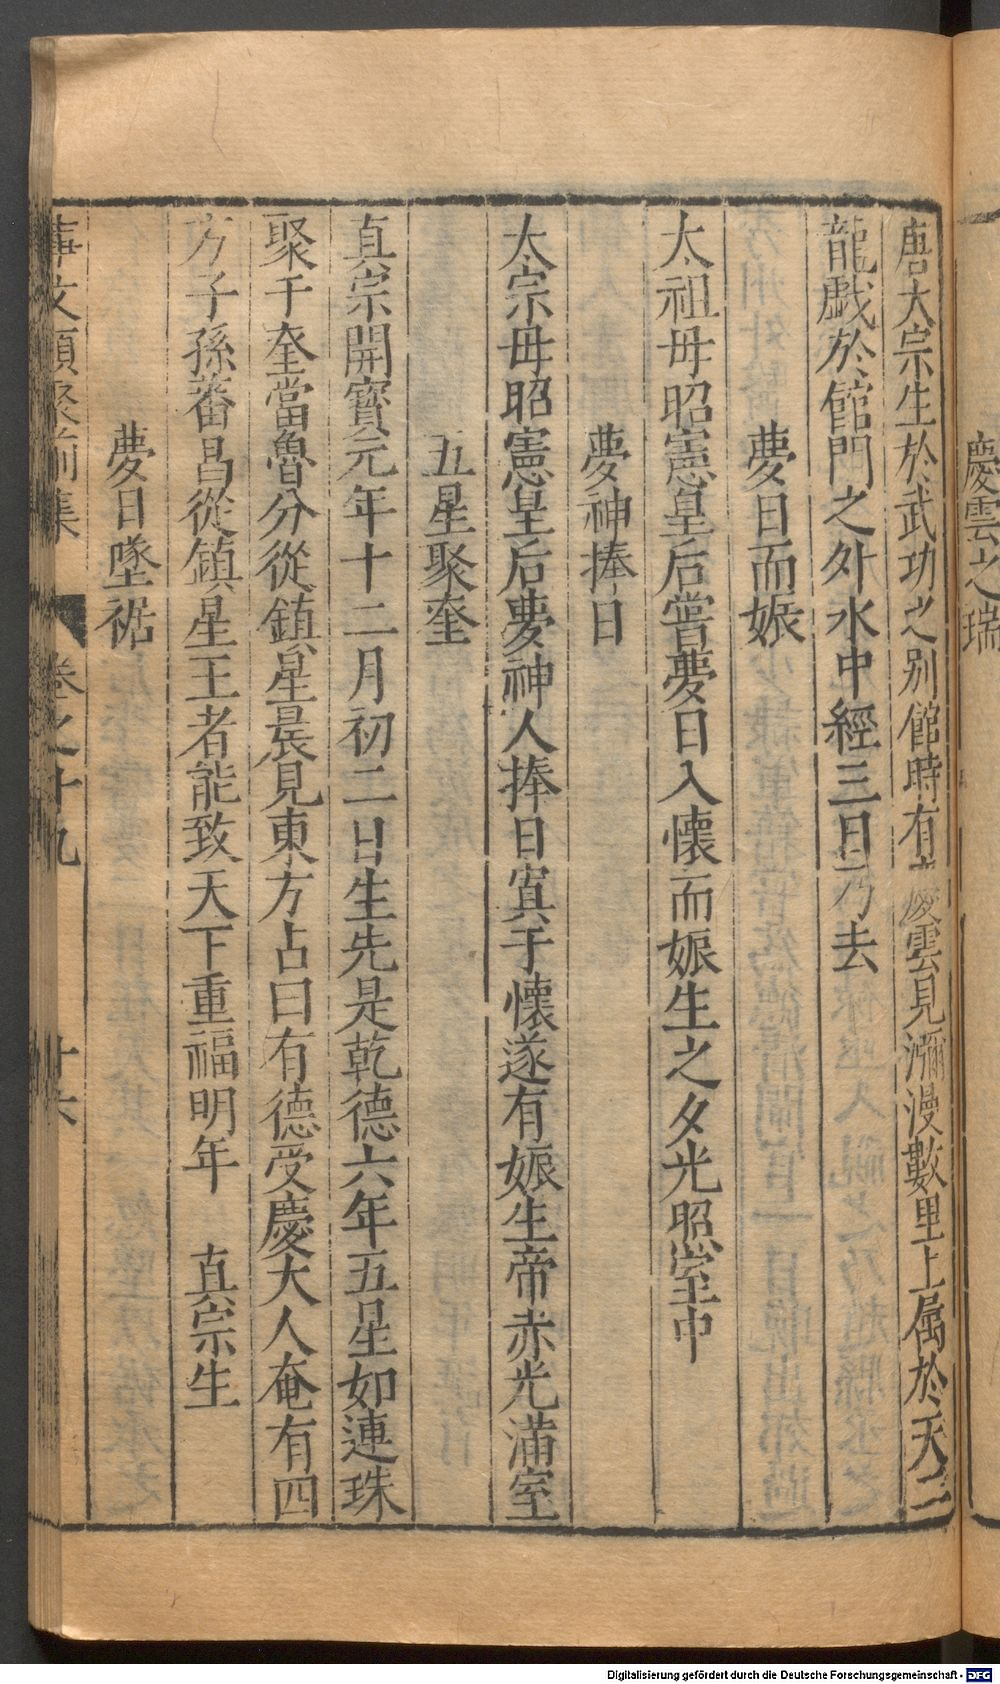 慶雲之瑞
唐太宗生於武功之别館時有慶雲見瀰漫數里上属於天二
龍戯於館門之外水中經三日乃去
夢日而娠
太祖母昭憲皇后嘗夢日入懷而娠生之夕光照室中
夢神捧日
太宗母昭憲皇后夢神人捧日寘于懷遂有娠生帝赤光滿室
五星聚奎
真宗開寳元年十二月初二日生先是乾德六年五星如連珠
聚于奎當魯分從鎮星晨見東方占曰有德受慶大人奄有四
方子孫蕃昌從鎮星王者能致天下重福明年　真宗生
夢日墜裾
事文類聚前集　卷之十九　十六
Digitalisierung gefördert durch die Deutsche Forschungsgemeinschaft - DFG